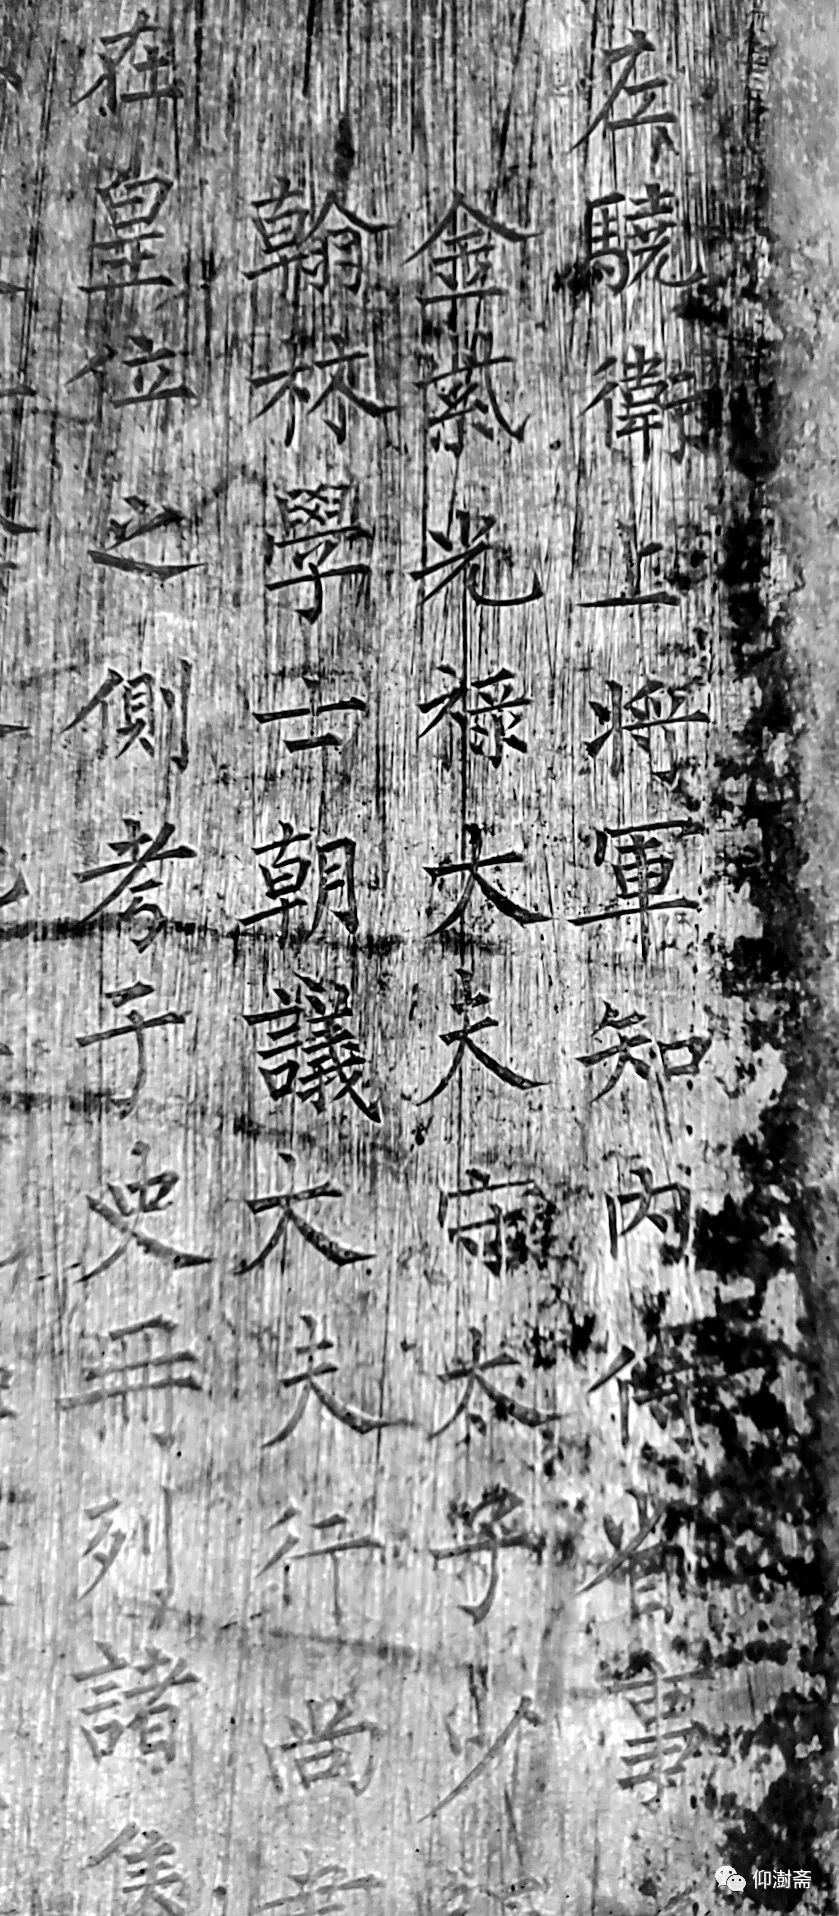 左驍衛上將軍知內侍省事
金紫光祿大夫守太子少
翰林學士朝議大夫行尚
在星位之側考子史冊列諸侯
仰澍斋